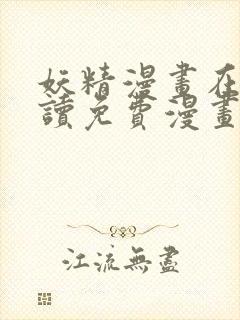 妖精漫畫在
讀免費漫畫
江流無盡